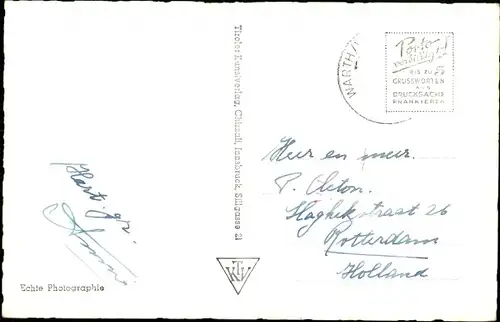 WARTH/
Porto
verbilligt!
BIS ZU 5
GRUSSWORTEN
ALS
DRUCKSACHE
FRANKIEREN
Tiroler Kunstverlag, Chizzali, Innsbruck, Sillgasse 21
Heer en mevr.
P.
Haghekstraat 26
Rotterdam
Holland
Hart. gr.
KTV
Echte Photographie